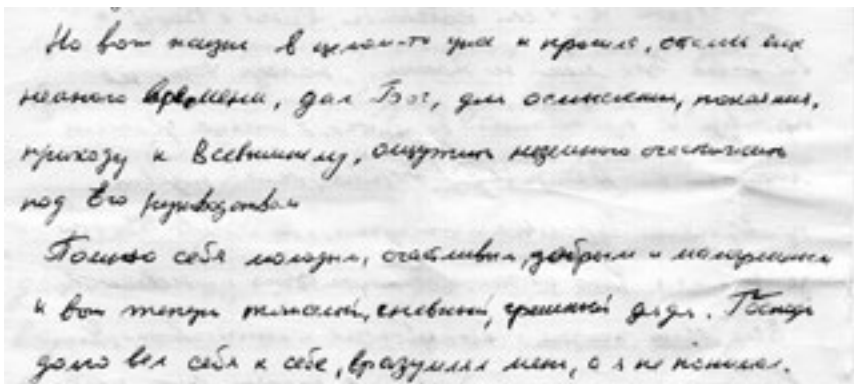 Но вот жизнь в целом-то уже и прошла, осталось еще
немного времени, дал Бог, для осмысления, покаяния,
прихожу к Всевышнему, ощутить немного счастья жить
под Его руководством
Помню себя молодым, счастливым, добрым и
и вот теперь пожилой, гневный, грешный дядя. Господь
долго вел себя к себе, вразумлял меня, а я не понимал.